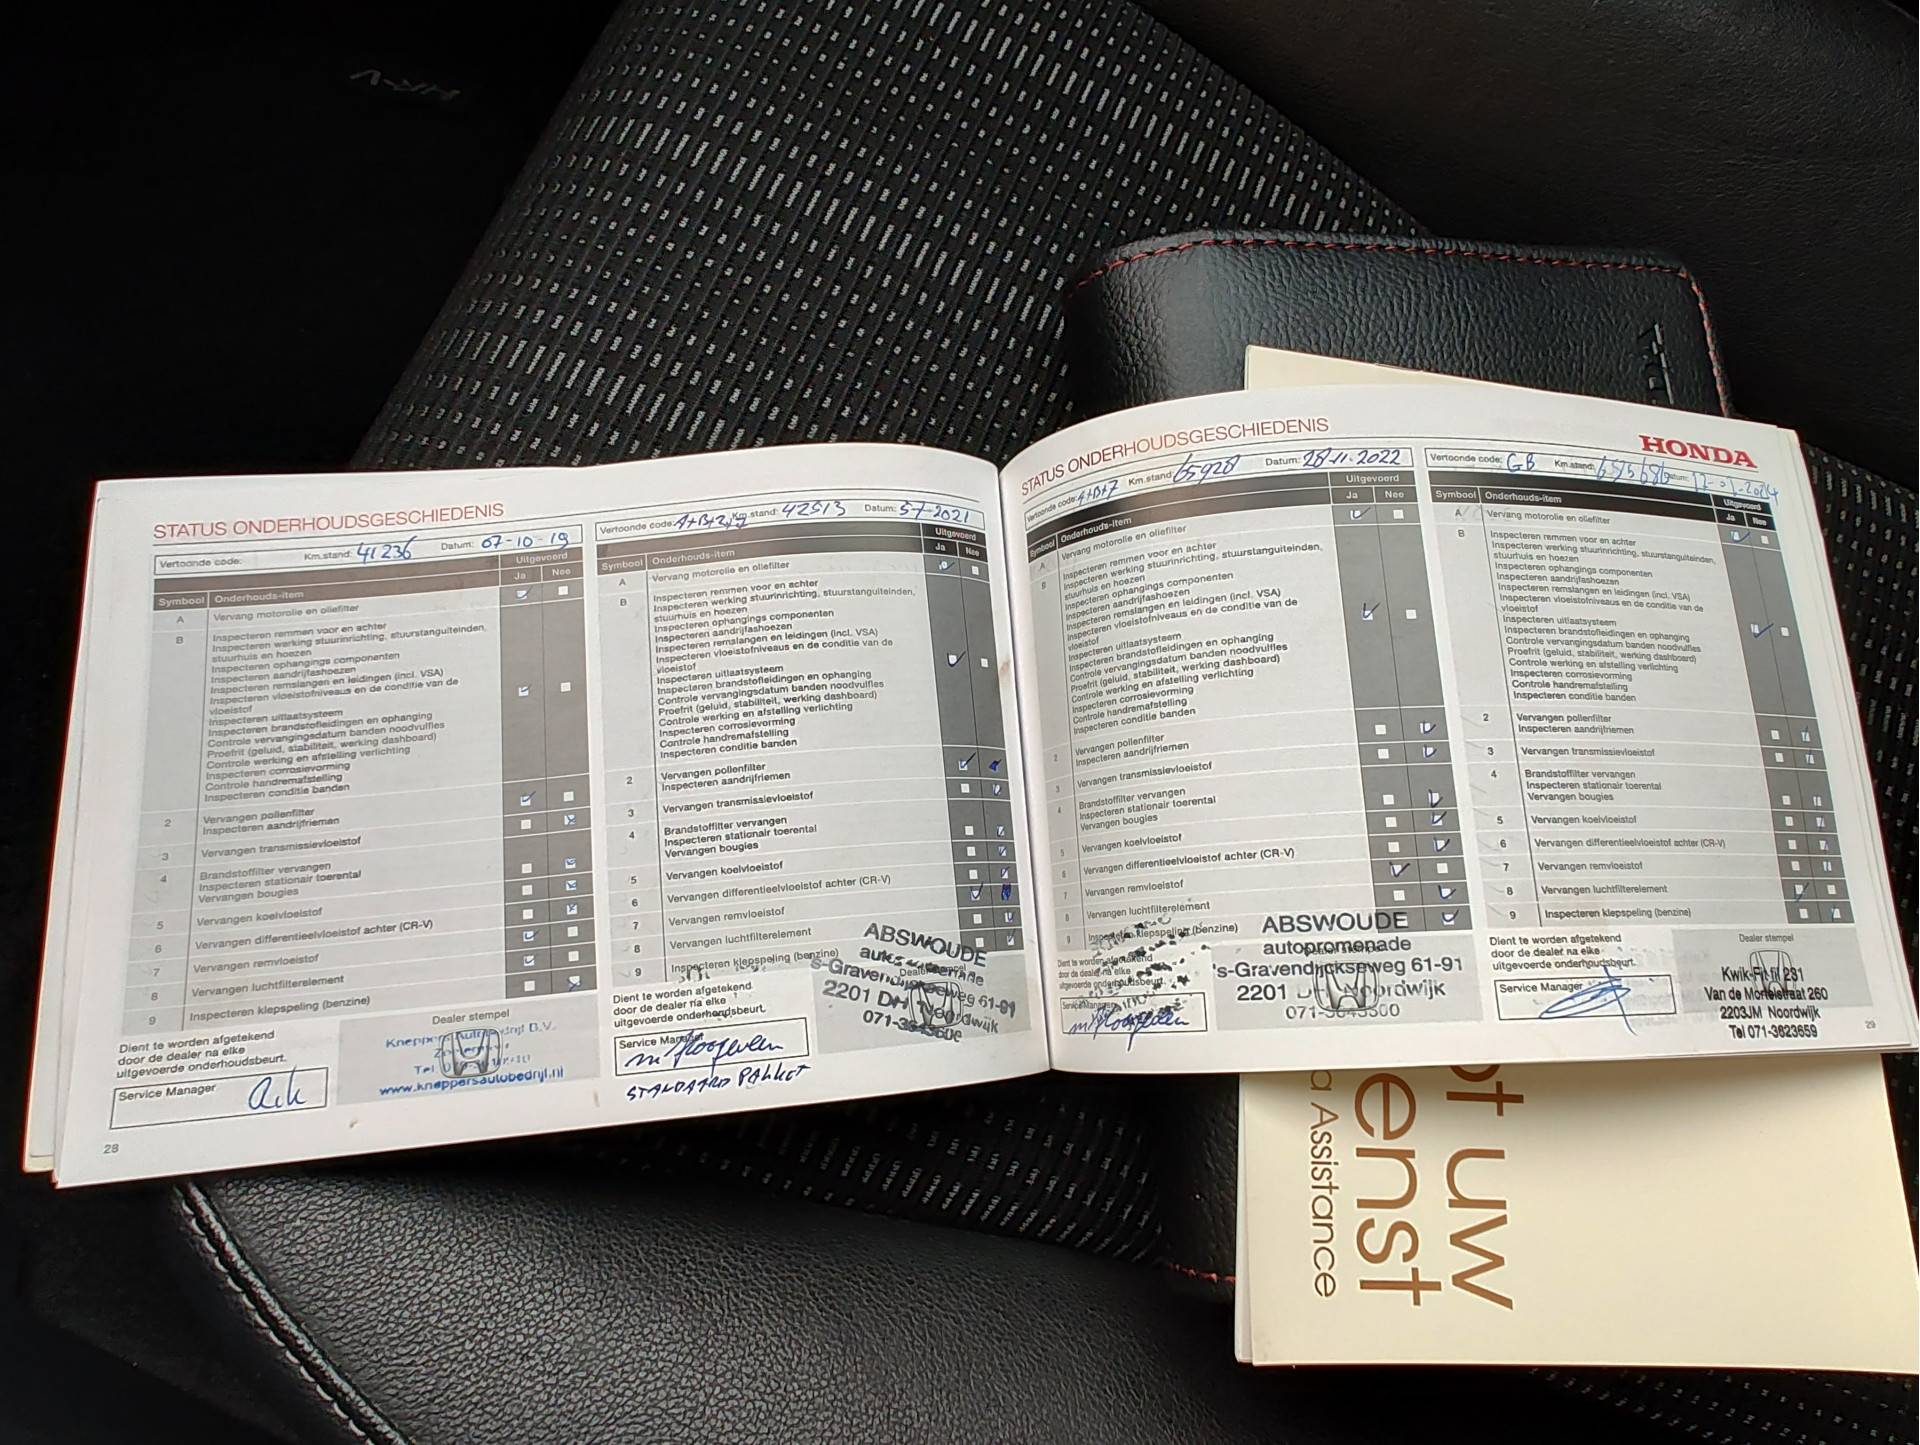 HR-V
STATUS ONDERHOUDSGESCHIEDENIS
Vertoonde code: Km.stand: 41236 Datum: 07-10-19
Symbool Onderhouds-item Uitgevoerd
Ja Nee
A Vervang motorolie en oliefilter
B Inspecteren remmen voor en achter
Inspecteren werking stuurinrichting, stuurstanguiteinden,
stuurhuis en hoezen
Inspecteren ophangings componenten
Inspecteren aandrijfashoezen
Inspecteren remslangen en leidingen (incl. VSA)
Inspecteren vloeistofniveaus en de conditie van de
vloeistof
Inspecteren uitlaatsysteem
Inspecteren brandstofleidingen en ophanging
Controle vervangingsdatum banden noodvulfles
Proefrit (geluid, stabiliteit, werking dashboard)
Controle werking en afstelling verlichting
Inspecteren corrosievorming
Controle handremafstelling
Inspecteren conditie banden
2 Vervangen pollenfilter
Inspecteren aandrijfriemen
3 Vervangen transmissievloeistof
4 Brandstoffilter vervangen
Inspecteren stationair toerental
Vervangen bougies
5 Vervangen koelvloeistof
6 Vervangen differentieelvloeistof achter (CR-V)
7 Vervangen remvloeistof
8 Vervangen luchtfilterelement
9 Inspecteren klepspeling (benzine)
Dient te worden afgetekend
door de dealer na elke
uitgevoerde onderhoudsbeurt.
Service Manager
Dealer stempel
Kneppers Autobedrijf B.V.
Tel
www.kneppersautobedrijf.nl
28
Vertoonde code: A+B+2, Km.stand: 42513 Datum: 5-7-2021
Symbool Onderhouds-item Uitgevoerd
Ja Nee
A Vervang motorolie en oliefilter
B Inspecteren remmen voor en achter
Inspecteren werking stuurinrichting, stuurstanguiteinden,
stuurhuis en hoezen
Inspecteren ophangings componenten
Inspecteren aandrijfashoezen
Inspecteren remslangen en leidingen (incl. VSA)
Inspecteren vloeistofniveaus en de conditie van de
vloeistof
Inspecteren uitlaatsysteem
Inspecteren brandstofleidingen en ophanging
Controle vervangingsdatum banden noodvulfles
Proefrit (geluid, stabiliteit, werking dashboard)
Controle werking en afstelling verlichting
Inspecteren corrosievorming
Controle handremafstelling
Inspecteren conditie banden
2 Vervangen pollenfilter
Inspecteren aandrijfriemen
3 Vervangen transmissievloeistof
4 Brandstoffilter vervangen
Inspecteren stationair toerental
Vervangen bougies
5 Vervangen koelvloeistof
6 Vervangen differentieelvloeistof achter (CR-V)
7 Vervangen remvloeistof
8 Vervangen luchtfilterelement
9 Inspecteren klepspeling (benzine)
Dient te worden afgetekend
door de dealer na elke
uitgevoerde onderhoudsbeurt.
Service Manager
m Hoogeveen
STANDAARD PAKKET
ABSWOUDE
's-Gravendijckseweg 61-91
2201 DH Noordwijk
STATUS ONDERHOUDSGESCHIEDENIS
HONDA
Vertoonde code: A+B+7 Km.stand: 65928 Datum: 28-11-2022
Symbool Onderhouds-item Uitgevoerd
Ja Nee
A Vervang motorolie en oliefilter
B Inspecteren remmen voor en achter
Inspecteren werking stuurinrichting, stuurstanguiteinden,
stuurhuis en hoezen
Inspecteren ophangings componenten
Inspecteren aandrijfashoezen
Inspecteren remslangen en leidingen (incl. VSA)
Inspecteren vloeistofniveaus en de conditie van de
vloeistof
Inspecteren uitlaatsysteem
Inspecteren brandstofleidingen en ophanging
Controle vervangingsdatum banden noodvulfles
Proefrit (geluid, stabiliteit, werking dashboard)
Controle werking en afstelling verlichting
Inspecteren corrosievorming
Controle handremafstelling
Inspecteren conditie banden
2 Vervangen pollenfilter
Inspecteren aandrijfriemen
3 Vervangen transmissievloeistof
4 Brandstoffilter vervangen
Inspecteren stationair toerental
Vervangen bougies
5 Vervangen koelvloeistof
6 Vervangen differentieelvloeistof achter (CR-V)
7 Vervangen remvloeistof
8 Vervangen luchtfilterelement
9 Inspecteren klepspeling (benzine)
Dient te worden afgetekend
door de dealer na elke
uitgevoerde onderhoudsbeurt.
m Hoogeveen
ABSWOUDE
autopromenade
's-Gravendijckseweg 61-91
2201 DH Noordwijk
Vertoonde code: GB Km.stand: Datum: 17-01-2024
Symbool Onderhouds-item Uitgevoerd
Ja Nee
A Vervang motorolie en oliefilter
B Inspecteren remmen voor en achter
Inspecteren werking stuurinrichting, stuurstanguiteinden,
stuurhuis en hoezen
Inspecteren ophangings componenten
Inspecteren aandrijfashoezen
Inspecteren remslangen en leidingen (incl. VSA)
Inspecteren vloeistofniveaus en de conditie van de
vloeistof
Inspecteren uitlaatsysteem
Inspecteren brandstofleidingen en ophanging
Controle vervangingsdatum banden noodvulfles
Proefrit (geluid, stabiliteit, werking dashboard)
Controle werking en afstelling verlichting
Inspecteren corrosievorming
Controle handremafstelling
Inspecteren conditie banden
2 Vervangen pollenfilter
Inspecteren aandrijfriemen
3 Vervangen transmissievloeistof
4 Brandstoffilter vervangen
Inspecteren stationair toerental
Vervangen bougies
5 Vervangen koelvloeistof
6 Vervangen differentieelvloeistof achter (CR-V)
7 Vervangen remvloeistof
8 Vervangen luchtfilterelement
9 Inspecteren klepspeling (benzine)
Dient te worden afgetekend
door de dealer na elke
uitgevoerde onderhoudsbeurt.
Service Manager
Dealer stempel
Kwik-Fit 231
Van de Mortelstraat 260
2203JM Noordwijk
Tel 071-3623659
29
ot uw
enst
a Assistance